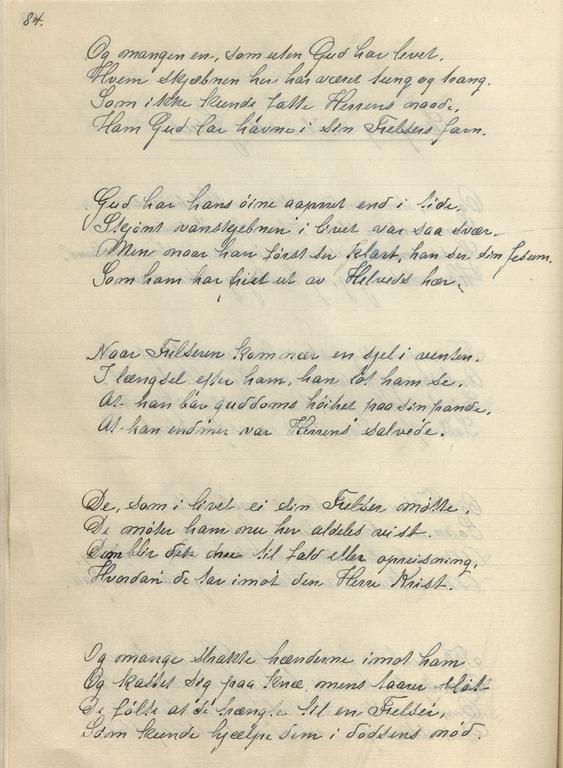 84.
Og mangen en, som uten Gud har levet,
Hvem skjæbnen her har været tung og trang.
Som ikke kunde fatte Herrens naade,
Ham Gud lar havne i sin Frelsers favn.
Gud har hans öine aapnet end i tide,
Skjönt vanskjebnen i livet var saa svær.
Men naar han først ser klart, han ser sin Jesum.
Som ham har friet ut av Helveds hær.
Naar Frelseren kom nær en sjel i venten.
I længsel efter ham, han löt ham se,
At han bar guddoms höihet paa sin pande,
At han endmer var Herrens salvede.
De, som i livet ei sin Frelser mötte,
De möter ham nu her aldeles vist.
Dem blir det nu til fald eller opreisning,
Hvordan de tar imot den Herre Krist.
Og mange strakte hænderne imot ham
Og kastet sig paa knæ, mens taarer flöt
De fölte at de trængte til en Frelser,
Som kunde hjælpe dem i dödsens nöd.